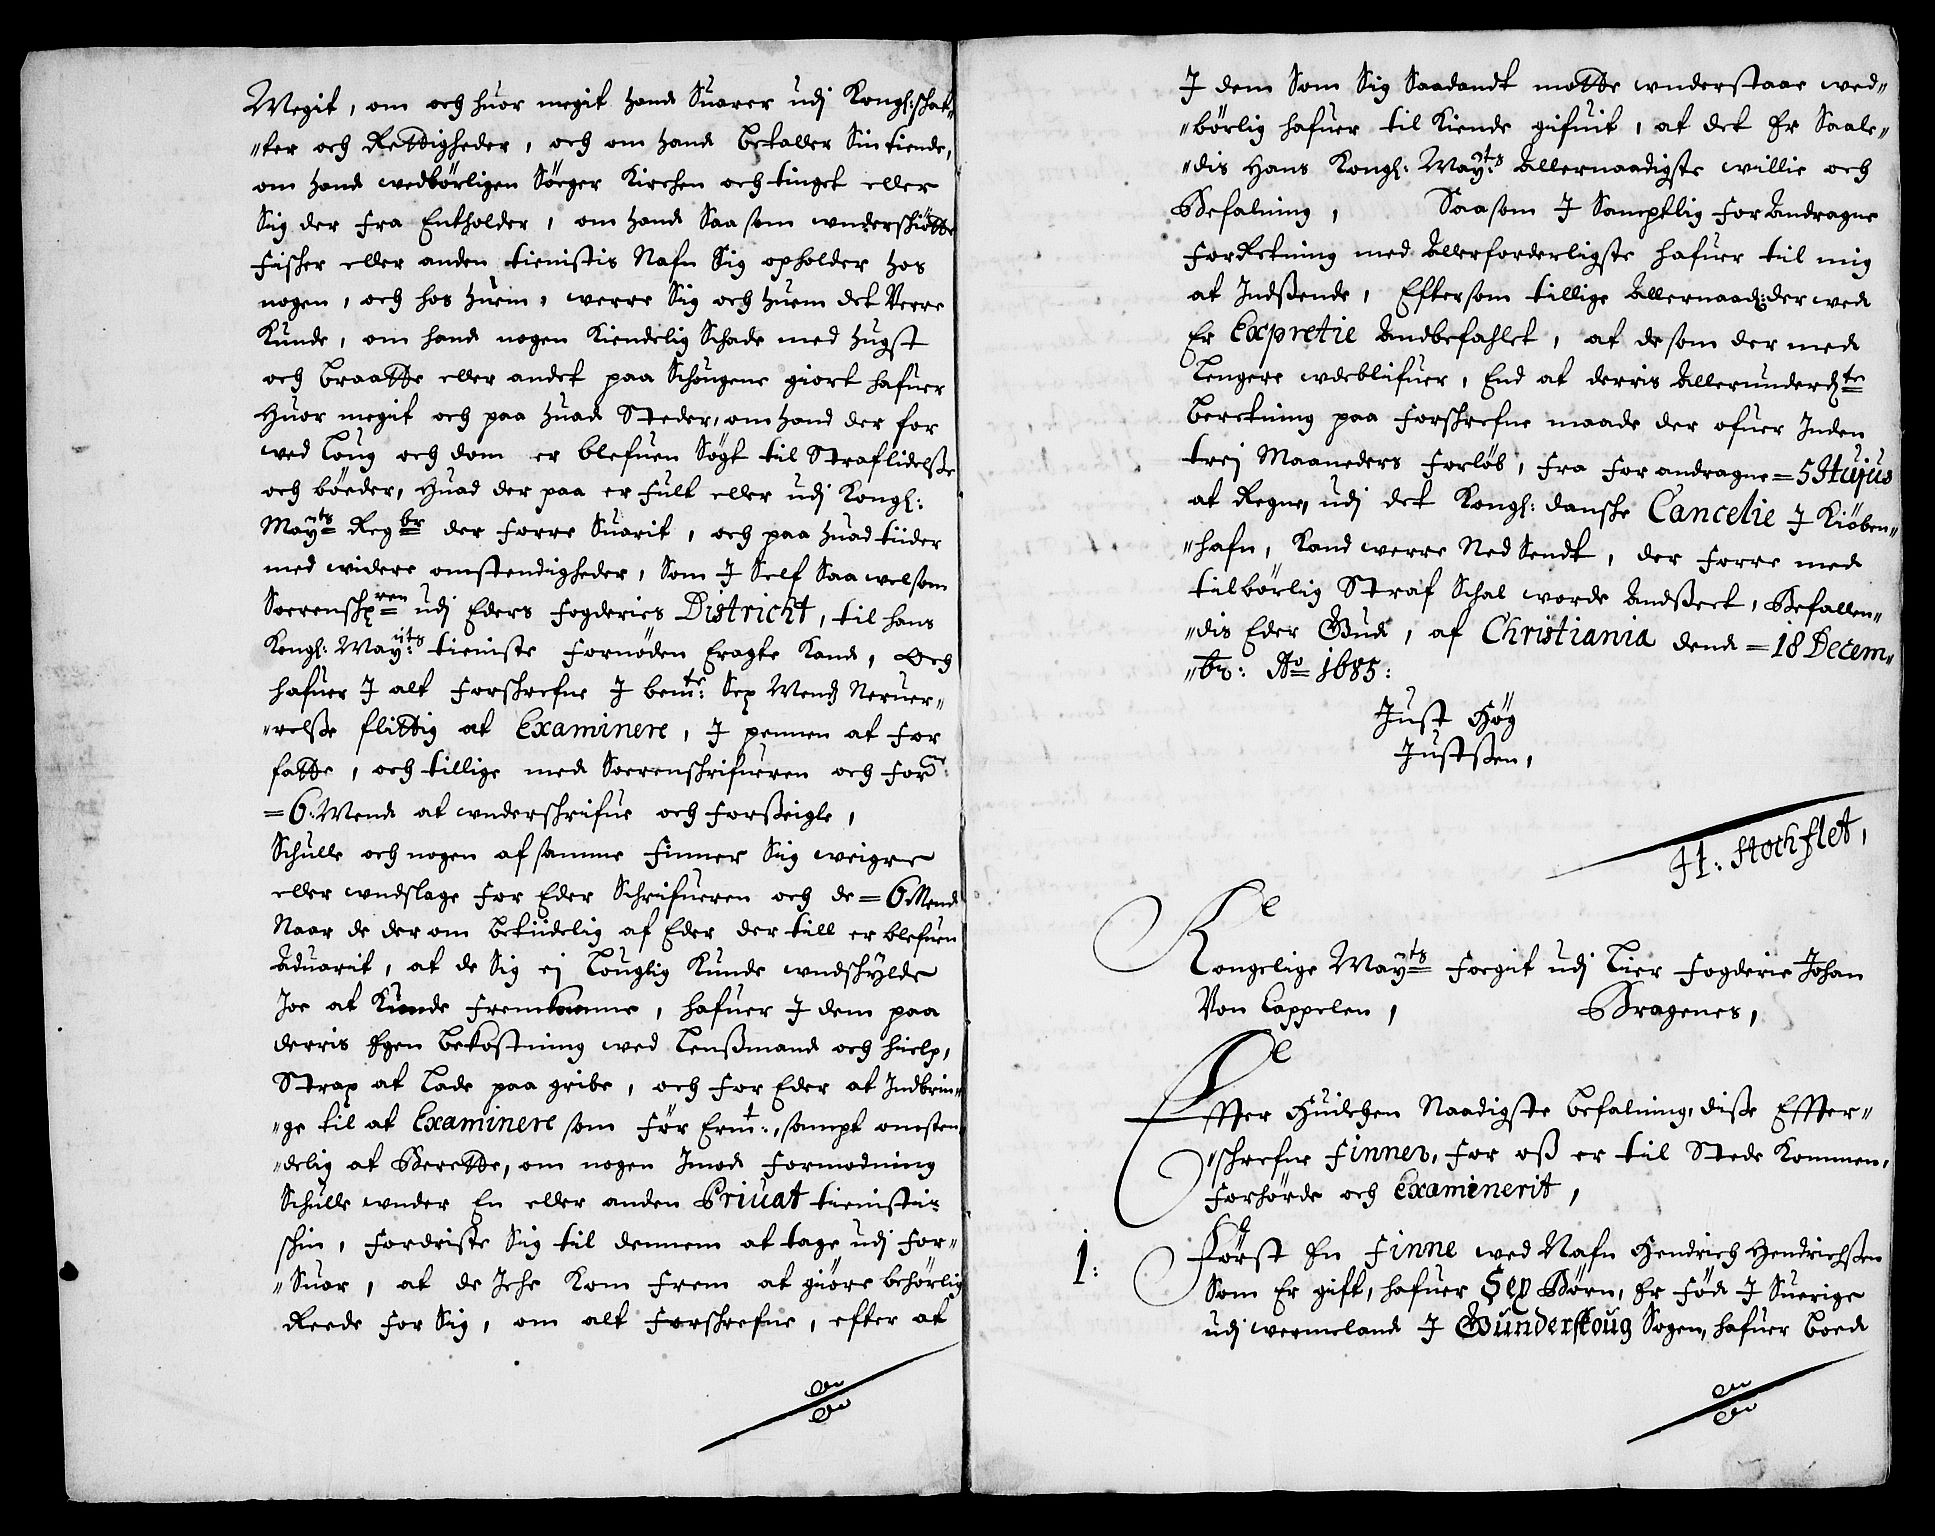 Megit, om och huor megit hand Suarer udj Kongl: schat„
„ter och Rettigheder, och om hand betaller Sin tiende,
om hand wedbörligen Söeger Kirchen och tinget eller
Sig der fra Entholder, om hand Saa som wnderschiötte
Fischer eller anden tienistis Nafn Sig opholder hos
nogen, och hos huem, werre Sig och huem det Verre
Kunde, om hand nogen Kiendelig Schade med hugst
och braatte eller andet paa Schougene giort hafuer
Huor megit och paa huad Steder, om hand der for
wed Loug och dom er blefuen Sögt til Straflidelsse
och böeder, Huad der paa er fult eller udj Kongl:
Mayts Regbr der forre Suarit, och paa huad tiider
med widere omstendigheder, Som I Self Saa welsom
Sorenschren udj Eders fogderies District, til hans
Kongl: Mayts tieniste fornöden Eragte Kand, Och
hafuer I alt forschrefne I bemte: Sex Mends Neruer„
„relsse flittig at Examinere, I pennen at for
fatte, och tillige med Sorenschrifueren och forne:
=6: Mend at wnderschrifue och forsseigle,
Schulle och nogen af samme Finner Sig weigre
eller wndslage for Eder Schrifueren och de =6 Mend
Naar de der om betiidelig af Eder der till er blefuen
Aduarit, at de Sig ej Louglig Kunde wndschylde
Joe at Kunde fremkomme, hafuer I dem paa
derris Egen bekostning wed Lenssmand och hielp,
Strax at lade paa gribe, och for Eder at Indbrin„
„ge til at Examinere som för Ermt:, sampt omsten„
„delig at Berette, om nogen Imod formodning
Schulle wnder En eller anden Priuat tienisti„
schin, fordriste Sig til dennem at tage udj for„
„Suar, at de Iche Kom frem at giöre behörlig
Reede for Sig, om alt forschrefne, efter at
I dem Som Sig Saadandt motte wnderstaae wed„
„börlig hafuer til Kiende gifuit, at det Er Saale„
„dis Hans Kongl: Mayts: Allernaadigste willie och
Befalning, Saasom I Samptlig for Andragne
forRetning med Allerforderligste hafuer til mig
at Indssende, Eftersom tillige Allernaad: der wed
Er Expretie Andbefahlet, at de som der med
Lengere wdeblifuer, End at derris Allerunderdte
beretning paa forschrefne maade der ofuer Inden
trej Maaneders forlöb, fra for andragne =5 Hujus
at Regne, udj det Kongl: danske Cancelie I Kiöben„
„hafn, Kand werre Ned Sendt, der forre med
tilbörlig Straf Schal worde Andsseet, Befallen„
„dis Eder Gud, af Christiania dend =18 Decem„
„br: Ao 1685:
Just Hög
Justssen,
H: Stochflet,
Kongelige Mayts fogit udj Lier fogderie Johan
Von Cappelen, Bragenes,
Effter Huilchen Naadigste befalning, disse Effter„
„schrefne Finner, for oss er til Stede Kommen,
forhörde och Examinerit,
1: Först En Finne wed Nafn Hendrich Hendrichssen
Som Er gift, hafuer Sex Börn, Er Föd I Suerige
udj wermeland I Gunderskoug Sogen, hafuer boed